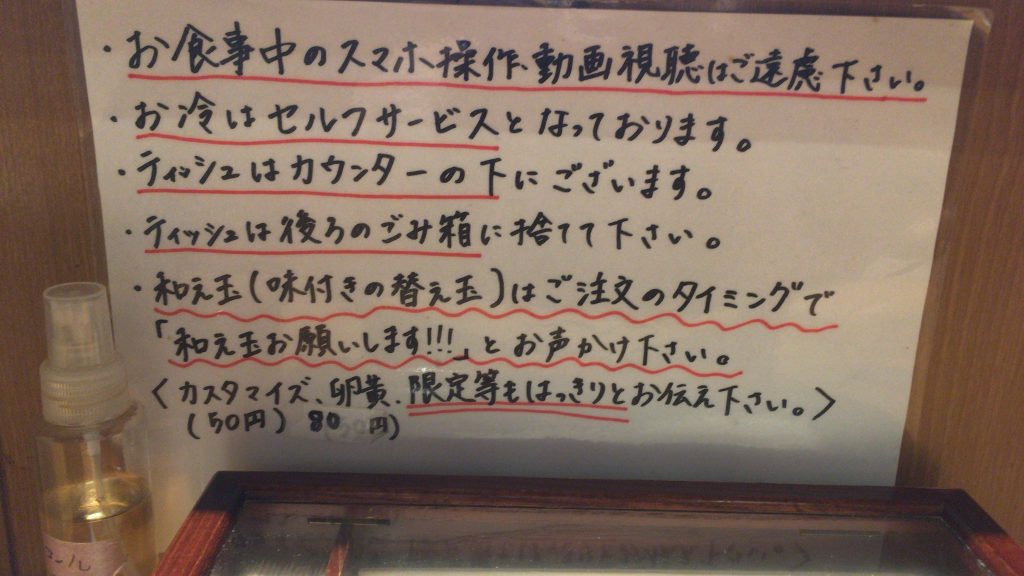 ・お食事中のスマホ操作、動画視聴はご遠慮下さい。
・お冷はセルフサービスとなっております。
・ティッシュはカウンターの下にございます。
・ティッシュは後ろのごみ箱に捨てて下さい。
・和え玉(味付きの替え玉)はご注文のタイミングで
「和え玉お願いします!!!」とお声かけ下さい。
〈カスタマイズ、卵黄、限定等もはっきりとお伝え下さい。〉
(50円) 80 円)